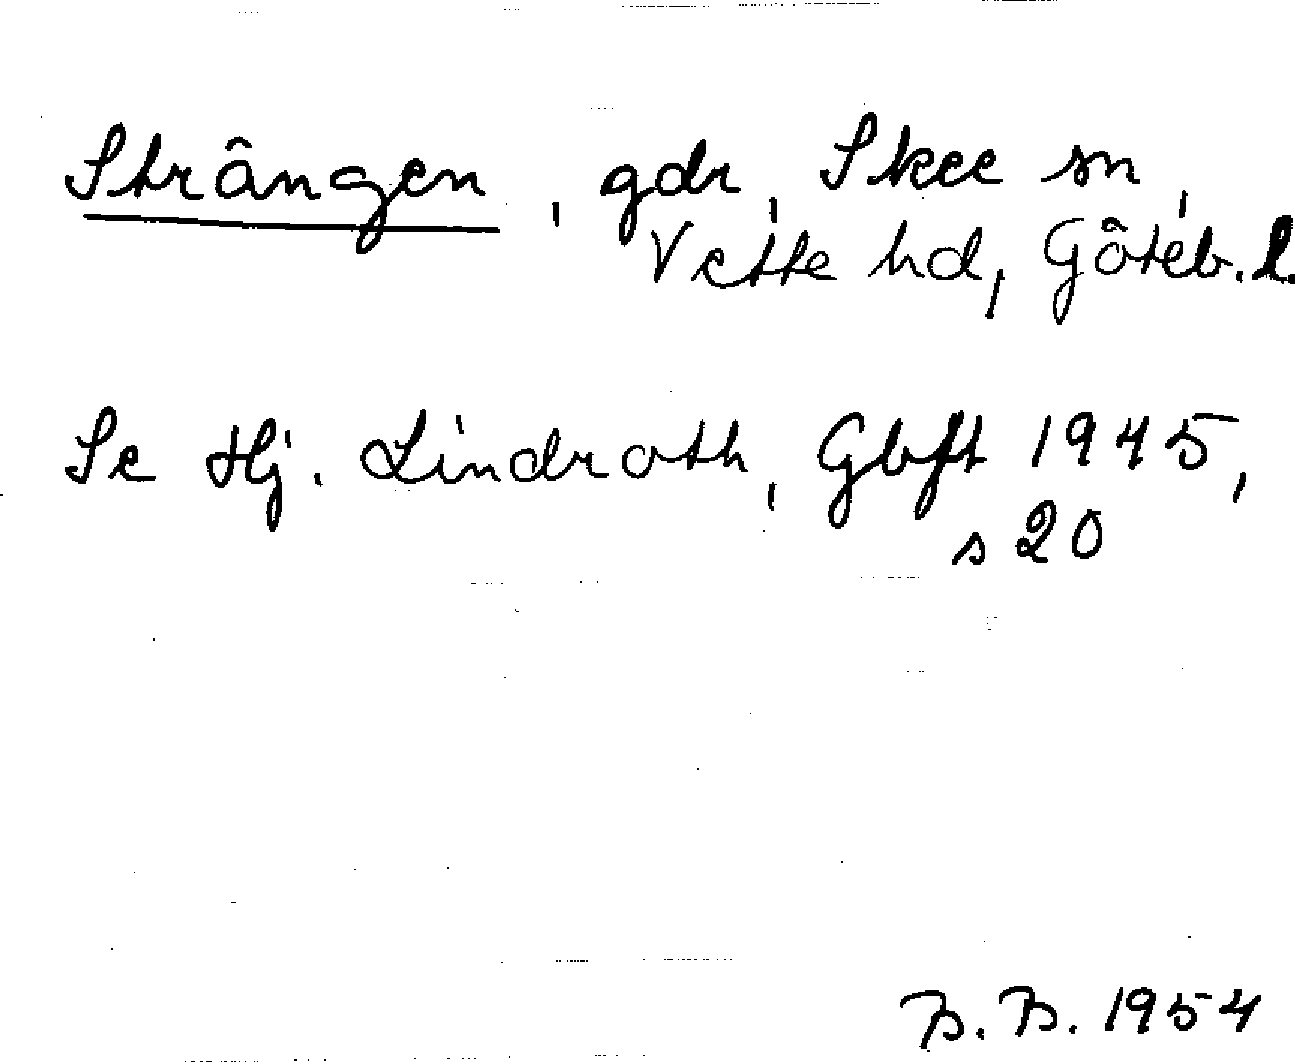 Strängen, gdr, Skee sn,
Vette hd, Göteb. l.
Se Hj. Lindroth, Gbft 1945,
s 20
B. B. 1954